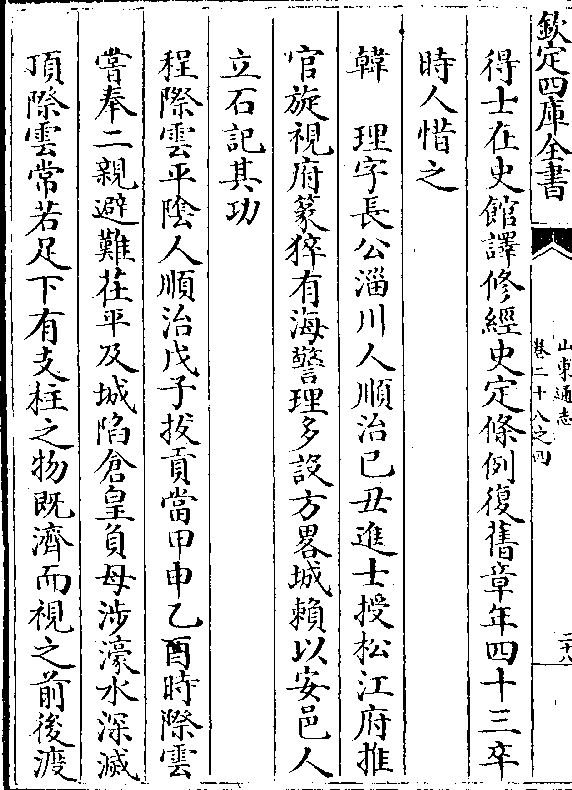 欽定四庫全書
山東通志
卷二十八之四
二十八
得士在史館譯修經史定條例復舊章年四十三卒
時人惜之
韓　理字長公淄川人順治己丑進士授松江府推
官旋視府篆猝有海警理多設方畧城賴以安邑人
立石記其功
程際雲平陰人順治戊子拔貢當甲申乙酉時際雲
嘗奉二親避難茌平及城陷倉皇負母涉濠水深滅
頂際雲常若足下有支柱之物既濟而視之前後渡